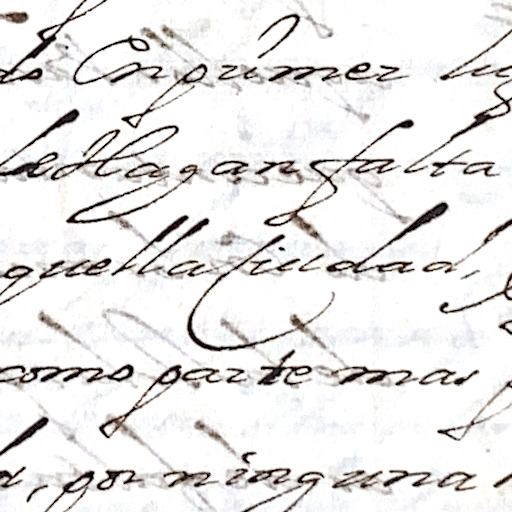 do En primer lug
le Hagan falta
quella Ciudad,
como parte mas
por ninguna